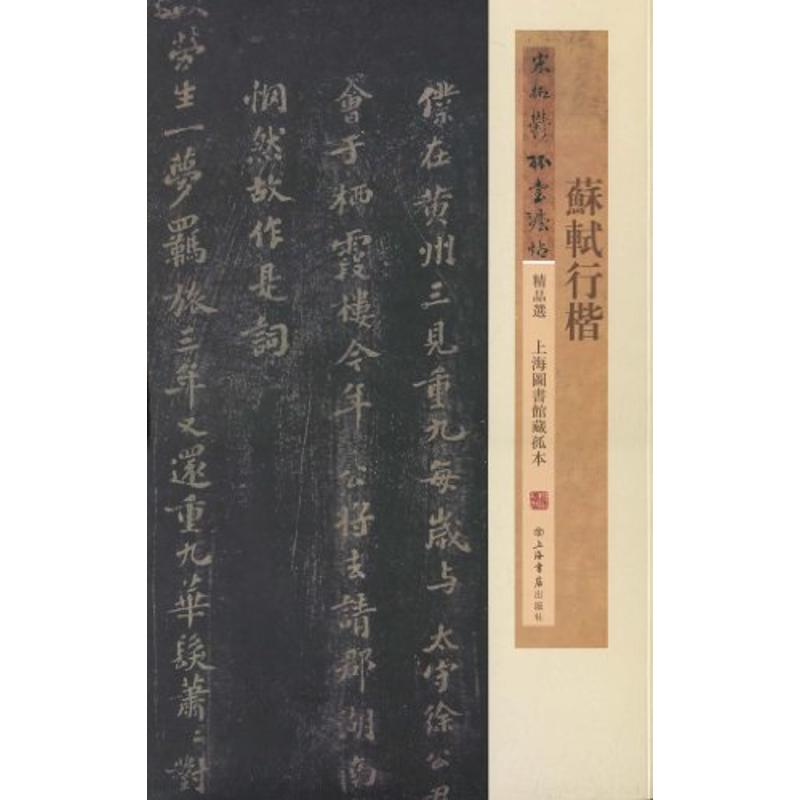 蘇軾行楷
宋拓鬱孤臺法帖
精品選 上海圖書館藏孤本
上海書店出版社
僕在黄州三見重九每歲与太守徐公君
會于栖霞樓今年公將去請郡湖南
惘然故作是詞
勞生一夢羈旅三年又還重九華髮蕭〻對